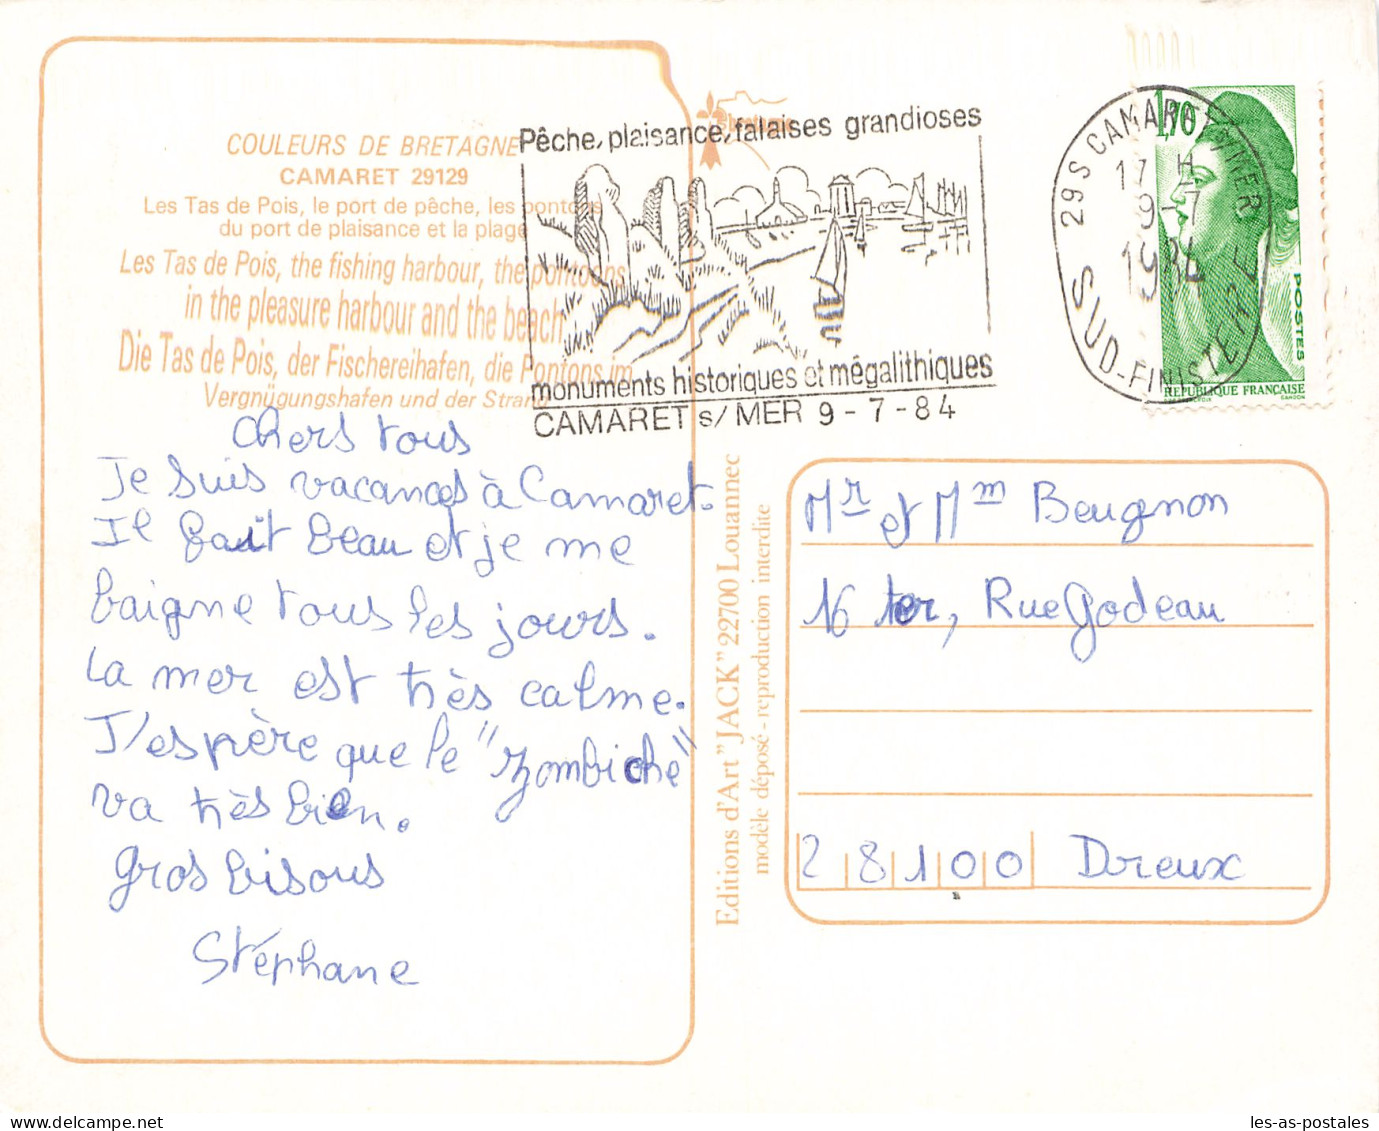 COULEURS DE BRETAGNE
CAMARET 29129
Les Tas de Pois, le port de pêche, les pontons
du port de plaisance et la plage
Les Tas de Pois, the fishing harbour, the pontoons
in the pleasure harbour and the beach
Die Tas de Pois, der Fischereihafen, die Pontons im
Vergnügungshafen und der Strand
Pêche, plaisance, falaises grandioses
monuments historiques et mégalithiques
CAMARET s/ MER 9-7-84
29S CAMARET S/MER
17 H
9-7
1984
SUD-FINISTERE
1,70
POSTES
REPUBLIQUE FRANÇAISE
GANDON
Chers tous
Je suis vacances à Camaret.
Il fait beau et je me
baigne tous les jours.
La mer est très calme.
J'espère que le "zombiche"
va très bien.
gros bisous
Stéphane
Editions d'Art "JACK" 22700 Louannec
modèle déposé - reproduction interdite
Mr et Mm Beugnon
16 ter, Rue Godeau
28100 Dreux
delcampe.net
les-as-postales